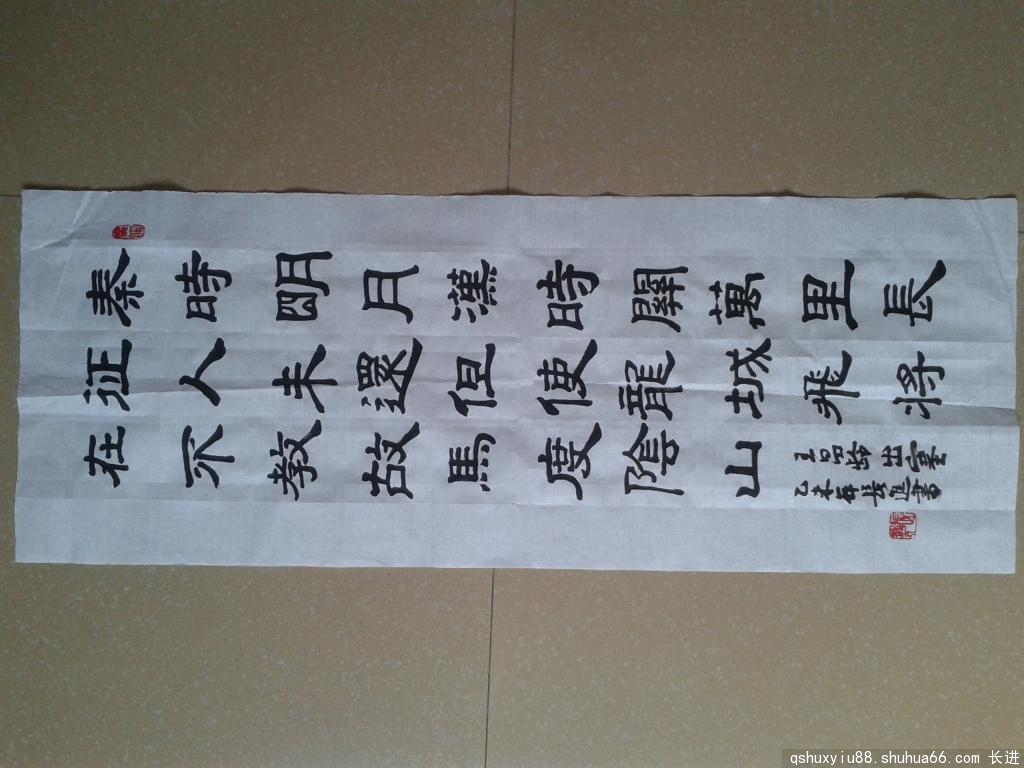 秦時明月漢時關萬里長
征人未還但使龍城飛將
在不教故馬度陰山
王昌齡出塞
乙未年長進書
qshuxyiu88.shuhua66.com 长进